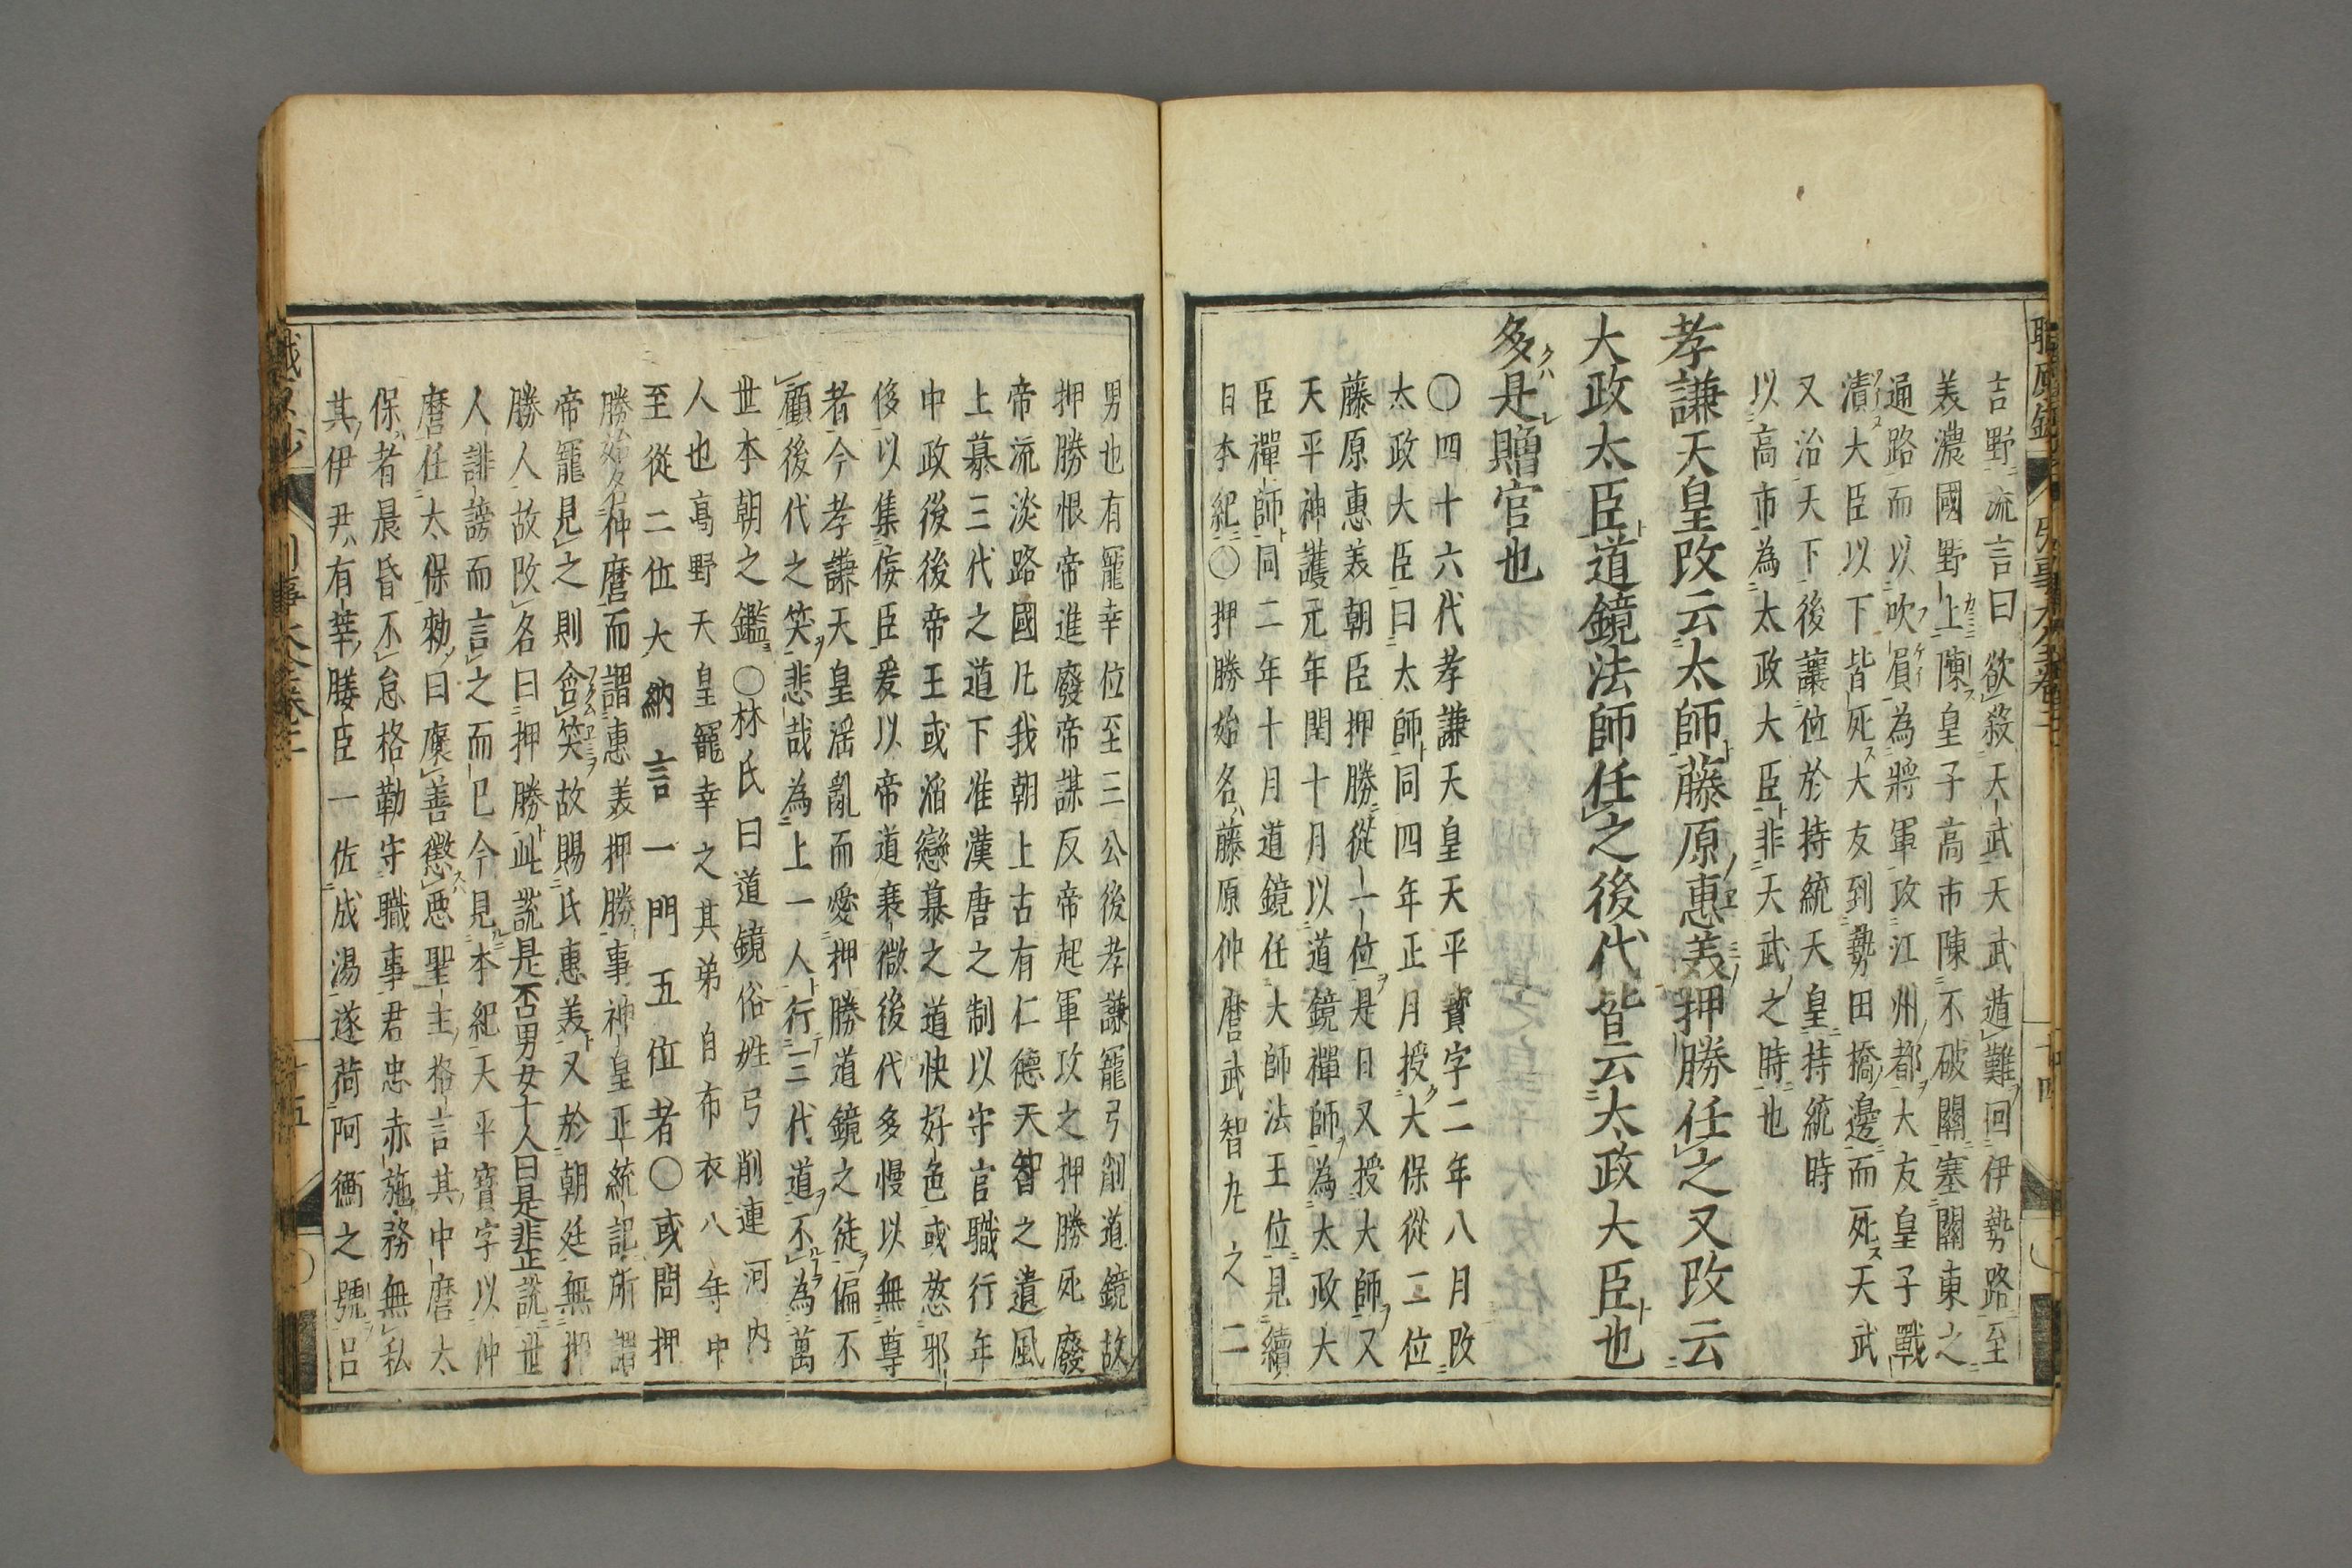 吉野流言曰欲殺天武天武遁難回伊勢路至
美濃國野上陳皇子高市陳不破關塞關東之
通路而以吹屓為將軍攻江州都大友皇子戰
漬大臣以下皆死大友到勢田橋邊而死天武
又治天下後讓位於持統天皇持統時
以高市為太政大臣非天武之時也
孝謙天皇改云太師藤原惠美押勝任之又改云
大政太臣道鏡法師任之後代皆云太政大臣也
多是贈官也
〇四十六代孝謙天皇天平寶字二年八月改
太政大臣曰太師同四年正月授大保從二位
藤原惠美朝臣押勝從一位是日又授大師又
天平神護元年閏十月以道鏡禪師為太政大
臣禪師同二年十月道鏡任大師法王位見續
日本紀〇押勝始名藤原仲麿武智九之二
男也有寵幸位至三公後孝謙寵弓削道鏡故
押勝恨帝進廢帝謀反帝起軍攻之押勝死廢
帝流淡路國凡我朝上古有仁德天智之遺風
上慕三代之道下准漢唐之制以守官職行年
中政後後帝王或淫戀慕之道快好色或憗邪
侈以集侫臣爰以帝道衰微後代多慢以無尊
者今孝謙天皇淫亂而愛押勝道鏡之徒偏不
顧後代之笑悲哉為上一人行三代道不為萬
世本朝之鑑〇林氏曰道鏡俗姓弓削連河內
人也高野天皇寵幸之其弟自布衣八年中
至從二位大納言一門五位者〇或問押
勝始名仲麿而謂惠美押勝事神皇正統記所謂
帝寵見之則含笑故賜氏惠美又於朝廷無押
勝人故改名曰押勝此說是否男女十人曰是非正說世
人誹謗而言之而已今見本紀天平寶字以仲
麿任太保勅曰褒善懲惡聖主格言其中麿太
保者晨昏不怠格勤守職事君忠赤施務無私
其伊尹有莘媵臣一佐成湯遂荷阿衡之號呂